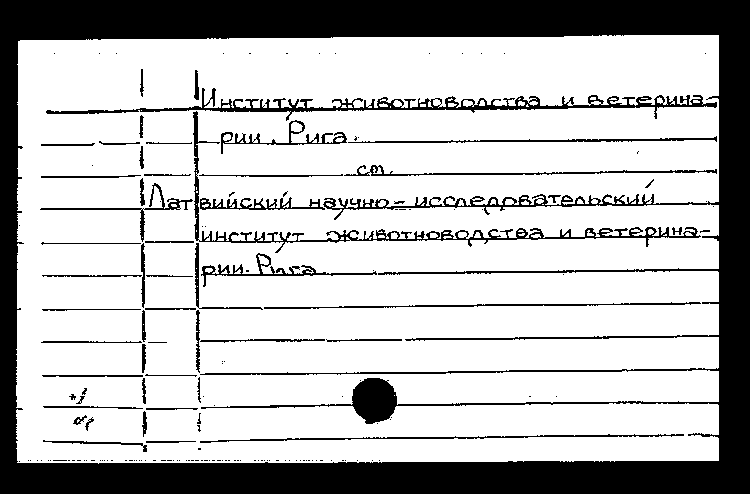 Институт животноводства и ветерина-
рии. Рига.
см.
Латвийский научно-исследовательский
институт животноводства и ветерина-
рии. Рига